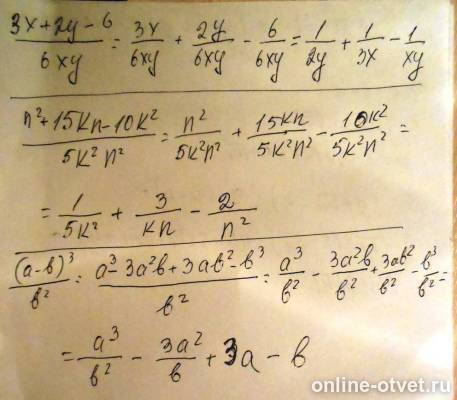 (3x+2y-6)/(6xy) = 3x/(6xy) + 2y/(6xy) - 6/(6xy) = 1/(2y) + 1/(3x) - 1/(xy)
(n²+15kn-10k²)/(5k²n²) = n²/(5k²n²) + 15kn/(5k²n²) - 10k²/(5k²n²) =
= 1/(5k²) + 3/(kn) - 2/n²
(a-b)³/b² = (a³-3a²b+3ab²-b³)/b² = a³/b² - 3a²b/b² + 3ab²/b² - b³/b² =
= a³/b² - 3a²/b + 3a - b
online-otvet.ru